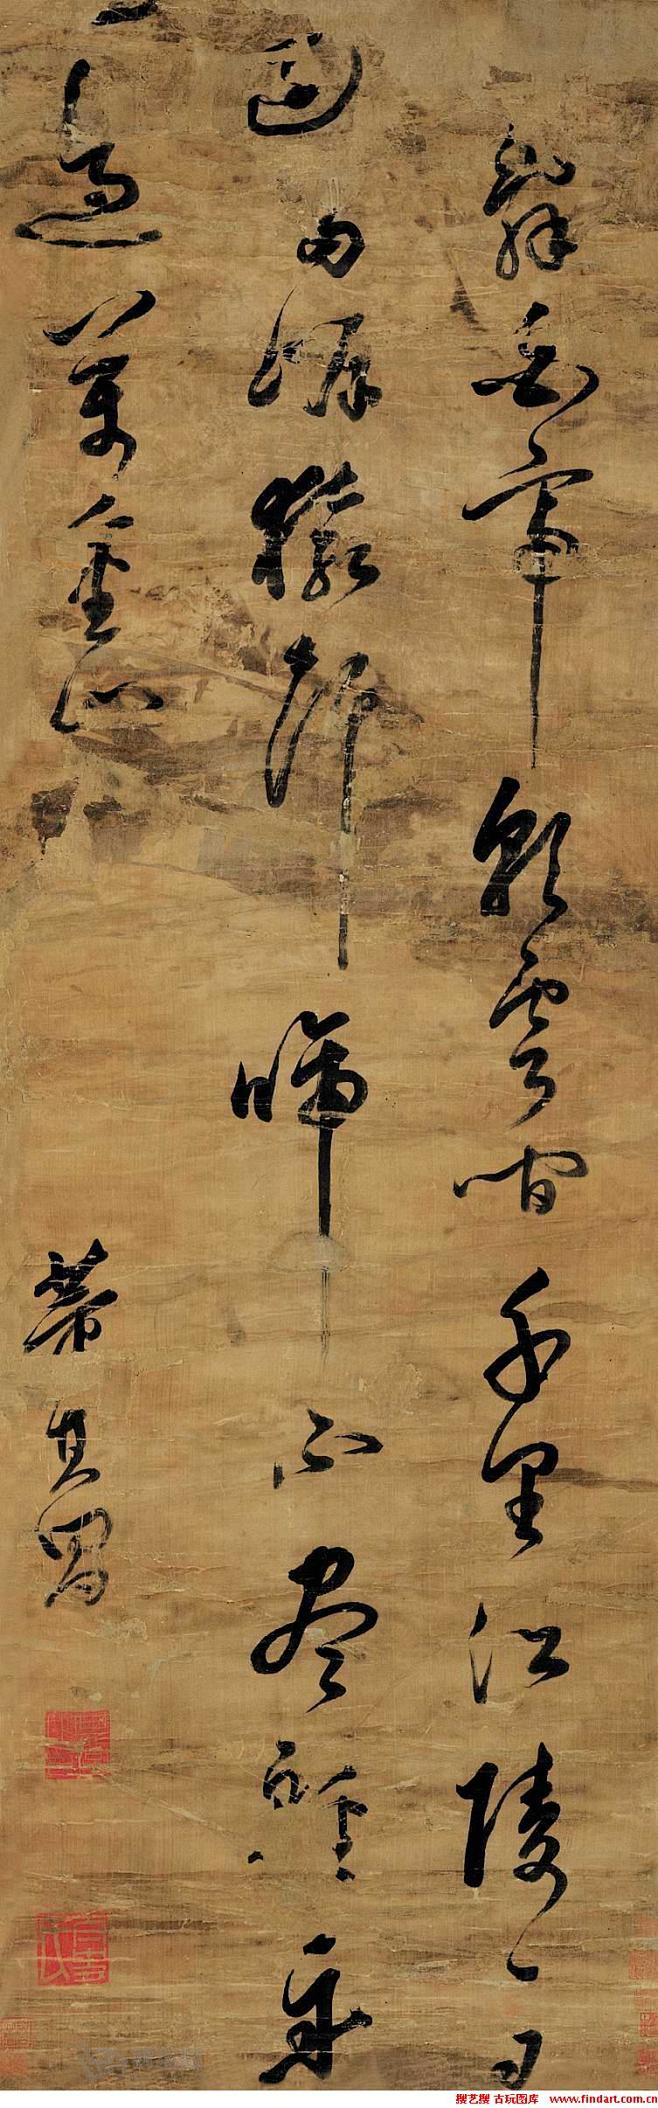 辭白帝彩雲間千里江陵一日
還兩涯猿聲啼不盡輕舟
過萬重山
董其昌
搜艺搜 古玩图库 www.findart.com.cn